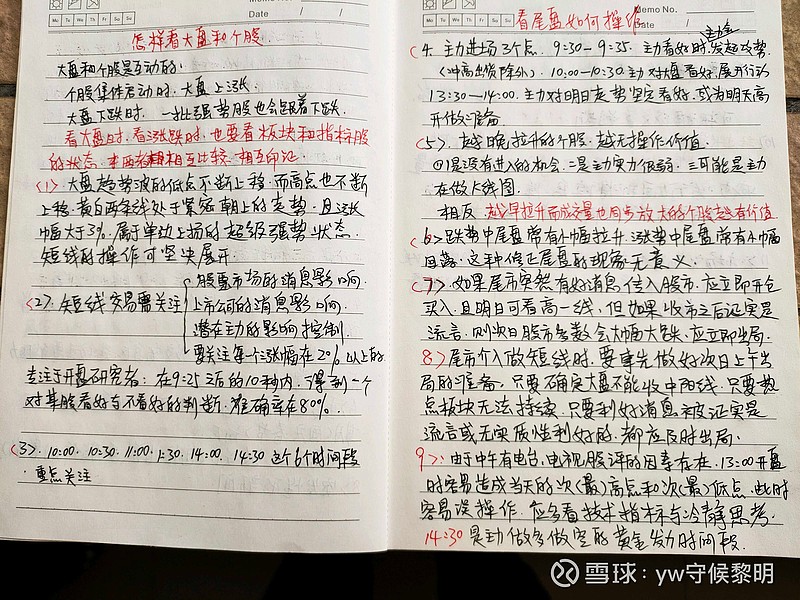 Memo No.
Mo Tu We Th Fr Sa Su
Date / /
怎样看大盘和个股.
大盘和个股是互动的.
个股集体启动时.大盘上涨.
大盘下跌时.一批强势股也会跟着下跌.
看大盘时.看涨跌时.也要看板块和指标股
的状态.相互比较.相互印证.
(1).大盘趋势波的低点不断上移.而高点也不断
上移.黄白两条线处于紧密朝上的走势.且涨
幅大于3%.属于单边上扬的超级强势状态.
短线的操作可坚决展开.
(2).短线交易需关注
股票市场的消息影响.
上市公司的消息影响.
潜在主力的影响控制.
要关注每个涨幅在2%以上的
专注于开盘研究者:在9:25之后的10秒内,得到一个
对某股看好与不看好的判断.准确率在80%.
(3).10:00.10:30.11:00.1:30.14:00.14:30这个6个时间段
.重点关注
Memo No.
Mo Tu We Th Fr Sa Su
Date / /
看尾盘如何操作
(4.主力进场3个点.9:30-9:35.主力看好时,发起攻势.
(冲高出货除外).10:00-10:30.主力对大盘看好.展开行动
13:30-14:00.主力对明日走势坚定看好.或为明天高
开做准备.
(5).越晚拉升的个股.越无操作价值.
①是没有进入的机会.二是主力实力很弱.三可能是主力
在做K线图.
相反.越早拉升而成交量也同步放大的个股越有价值
(6>跌势中尾盘常有小幅拉升.涨势中尾盘常有小幅
回落.这种修正尾盘的现象无意义.
(7).如果尾市突然有好消息传入股市.应立即开仓
买入.且明日可看高一线,但如果收市之后证实是
流言.则次日股市多数会大幅大跌.应立即出局.
8>尾市介入做短线时.要事先做好次日上午出
局的准备.只要确定大盘不能收中阳线.只要热
点板块无法持续.只要利好消息被证实是
流言或无实质性利好的.都应及时出局.
9>.由于中午有电台,电视股评的因素存在.13:00开盘
时容易造成当天的次(最)高点和次(最)低点.此时
容易误操作.应多看技术指标与冷静思考.
14:30是主力做多做空的黄金发力时间段.
雪球:yw守候黎明